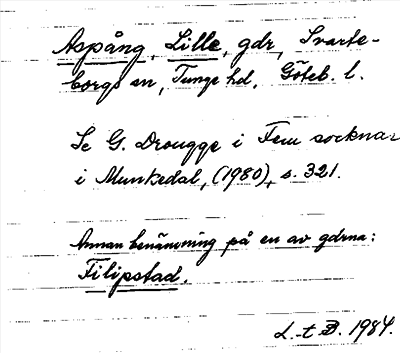 Aspång, Lille, gdr, Svarte-
borgs sn, Tunge hd, Göteb. l.
Se G. Drougge i Fem socknar
i Munkedal, (1980), s. 321.
Annan benämning på en av gdrna:
Filipstad.
L.-t B. 1984.